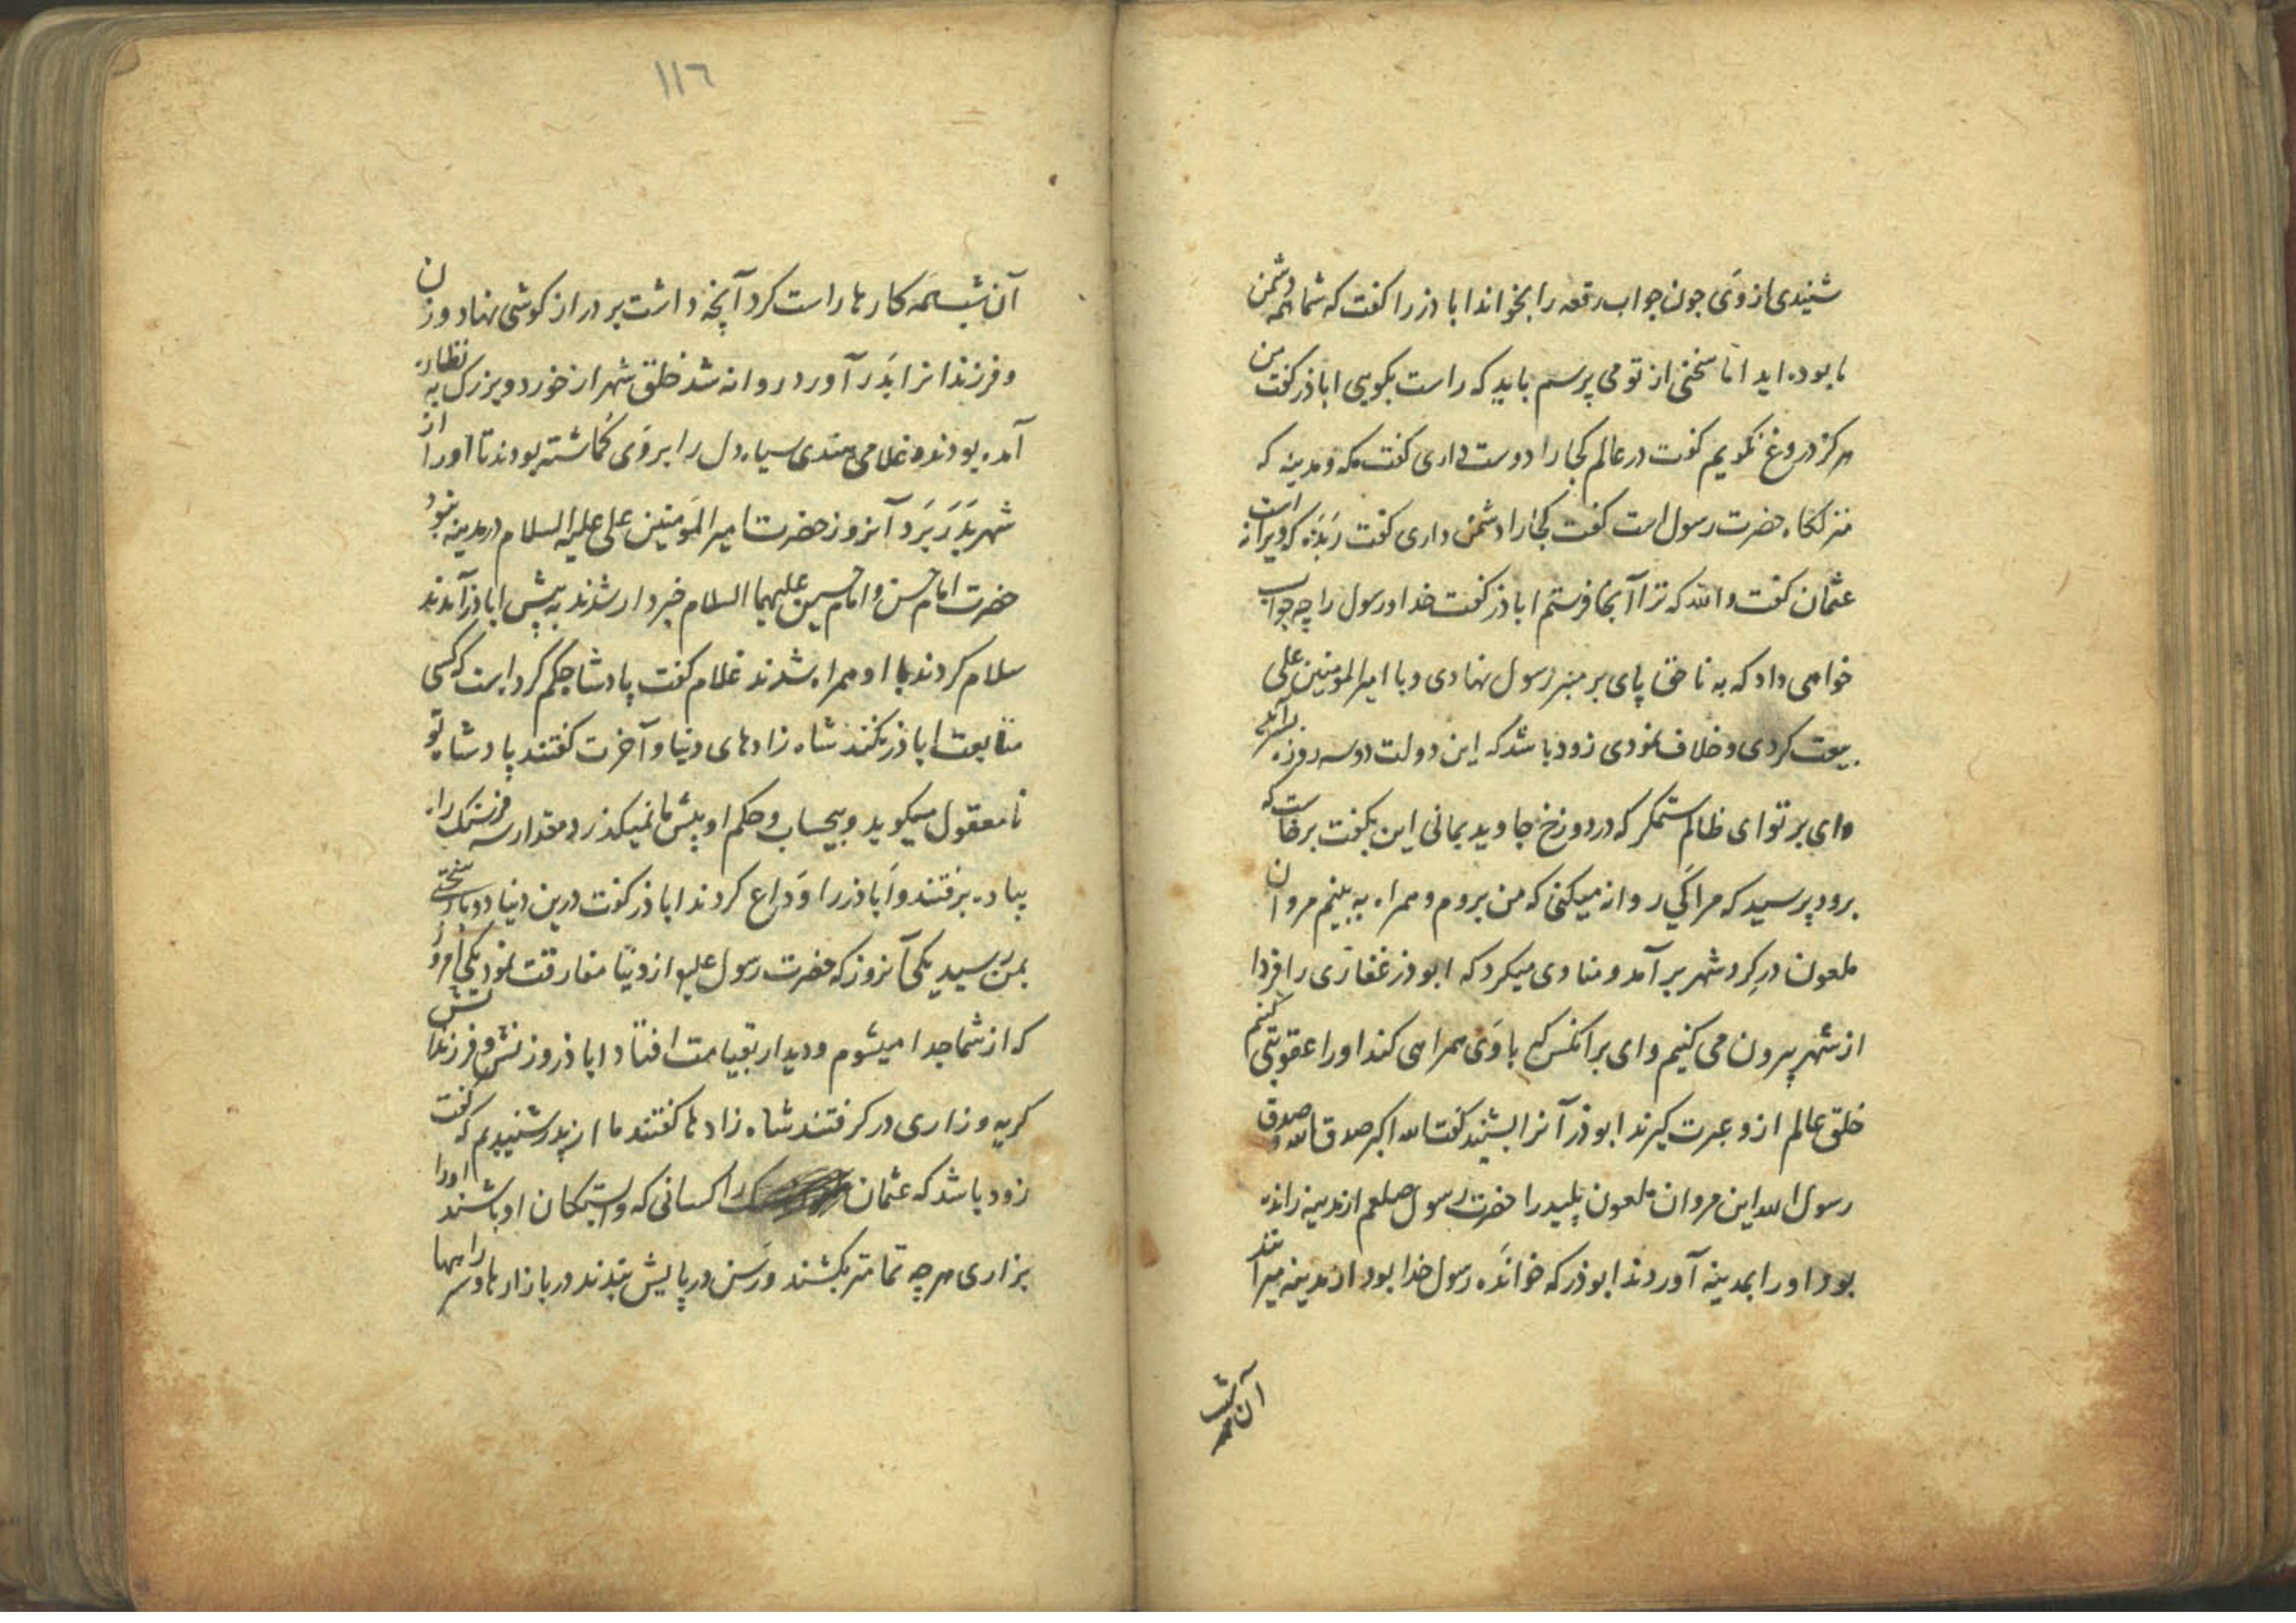 شنیدی از وی جون جواب رقعه را بخواند ابا ذر را کفت که شما همه دشمن
ما بوده اید اما سخنی از تو می پرسم باید که راست بکویی اباذر کفت من
هرکز دروغ نکویم کفت در عالم کجا را دوست داری کفت مکه و مدینه که
منزلکاه حضرت رسول است کفت کجا را دشمن داری کفت رَبَذه که ویرانه است
عثمان کفت والله که ترا آنجا فرستم اباذر کفت خدا و رسول را چه جواب
خواهی داد که به ناحق پای بر منبر رسول نهادی و با امیر المومنین علی
بیعت کردی و خلاف نمودی زود باشد که این دولت دوسه روزه
وای بر تو ای ظالم ستمکر که در دوزخ جاوید بمانی این بکفت برخاست که
برود پرسید که مرا کَی روانه میکنی که من بروم و همراه به بینم مروان
ملعون در کرد شهر بر آمد و منادی میکرد که ابوذر غفاری را فردا
از شهر بیرون می کنیم وای بر آنکس که با وَی همراهی کند او را عقوبتی کنیم
خلق عالم ازو عبرت کیرند ابوذر آنرا بشنید کفت الله اکبر صدق الله و صدق
رسول الله این مروان ملعون پلید را حضرت رسول صلعم از مدینه رانده
بود او را بمدینه آوردند ابوذر که خوانَده رسول خدا بود از مدینه میرانند
آن شب همه
١١٦
آن شب همَه کارها راست کرد آنچه داشت بر دراز کوشی نهاد و زن
و فرزندانرا بَدر آورد روانه شد خلق شهر از خورد و بزرک به نظاره
آمده بودند و غلامی هندی سیاه دل را بروَی کماشته بودند تا او را از
شهر بَدَر بَرَد آنروز حضرت امیر المَومنین علی علیه السلام در مدینه نبود
حضرت امام حسن و امام حسین علیهما السلام خبردار شدند به پیش اباذر آمدند
سلام کردند با او همراه شدند غلام کفت پادشا حکم کرد است که کسی
متابعت اباذر نکند شاه زادهای دنیا و آخرت کفتند پادشاه تو
نامعقول میکوید و بیحساب و حکم او پیش ما نمیکذرد مقدار سه فرسنک راه
پیاده برفتند و اَباذر را وَداع کردند اباذر کفت درین دنیا دوبار سختی
بمن رسید یکی آنروز که حضرت رسول علیه از دنیا مفارقت نمود یکی امروز
که از شما جدا میشوم و دیدار بقیامت افتاد اباذر و زنش و فرزندانش
کریه و زاری در کرفتند شاه زادها کفتند ما از پدر شنیدیم که کفت
زود باشد که عثمان را کسانی که وابستکان او باشند او را
بزاری هر چه تمامتر بکشند و رَسن در پایش بندند در بازارها و سر راهها